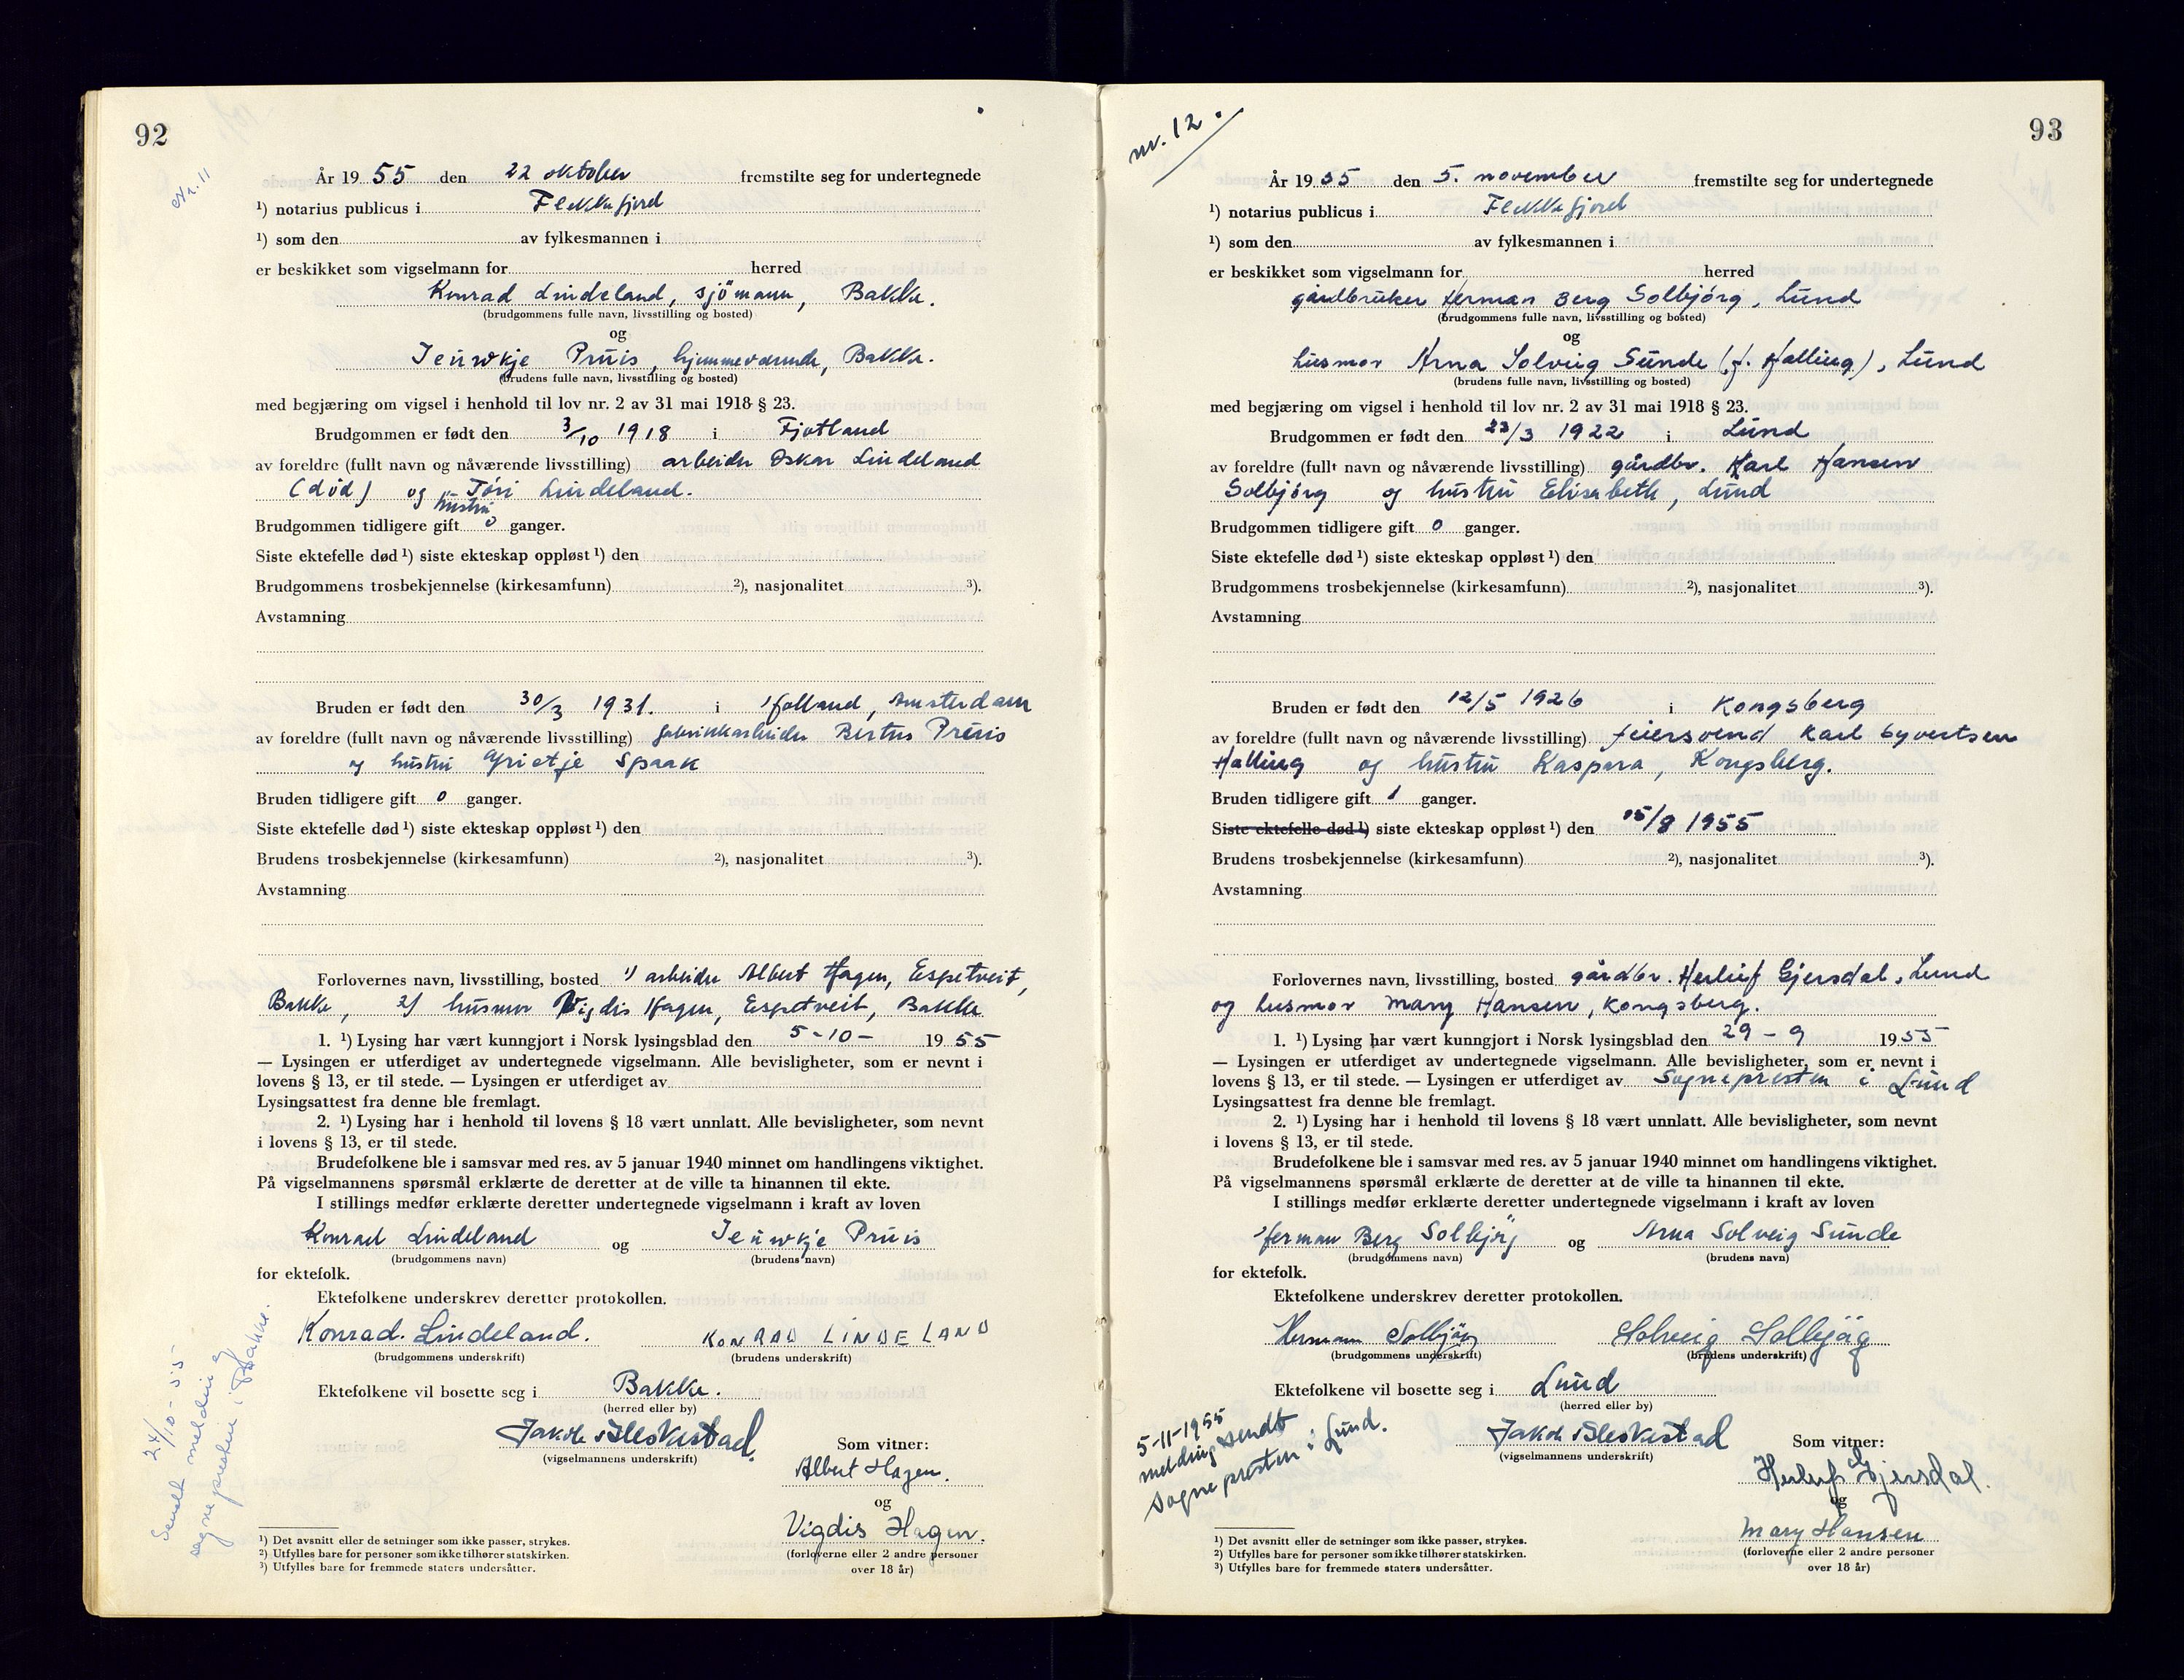 92
nr. 11
År 19 55 den 22 oktober fremstilte seg for undertegnede
¹) notarius publicus i Flekkefjord
¹) som den av fylkesmannen i
er beskikket som vigselmann for herred
Konrad Lindeland, sjömann, Bakke.
(brudgommens fulle navn, livsstilling og bosted)
og
Jeuwkje Pruis, hjemmeværende, Bakke.
(brudens fulle navn, livsstilling og bosted)
med begjæring om vigsel i henhold til lov nr. 2 av 31 mai 1918 § 23.
Brudgommen er født den 3/10 1918 i Fjotland
av foreldre (fullt navn og nåværende livsstilling) arbeider Oskar Lindeland
(död) og hustru Töri Lindeland.
Brudgommen tidligere gift 0 ganger.
Siste ektefelle død ¹) siste ekteskap oppløst ¹) den
Brudgommens trosbekjennelse (kirkesamfunn) ²), nasjonalitet ³).
Avstamning
Bruden er født den 30/3 1931. i Holland, Amsterdam
av foreldre (fullt navn og nåværende livsstilling) fabrikkarbeider Bertus Pruis
og hustru Grietje Spaak
Bruden tidligere gift 0 ganger.
Siste ektefelle død ¹) siste ekteskap oppløst ¹) den
Brudens trosbekjennelse (kirkesamfunn) ²), nasjonalitet ³).
Avstamning
Forlovernes navn, livsstilling, bosted 1) arbeider Albert Hagen, Espetveit,
Bakke, 2) husmor Vigdis Hagen, Espetveit, Bakke
1. ¹) Lysing har vært kunngjort i Norsk lysingsblad den 5-10- 19 55
— Lysingen er utferdiget av undertegnede vigselmann. Alle bevisligheter, som er nevnt i
lovens § 13, er til stede. — Lysingen er utferdiget av
Lysingsattest fra denne ble fremlagt.
2. ¹) Lysing har i henhold til lovens § 18 vært unnlatt. Alle bevisligheter, som nevnt
i lovens § 13, er til stede.
Brudefolkene ble i samsvar med res. av 5 januar 1940 minnet om handlingens viktighet.
På vigselmannens spørsmål erklærte de deretter at de ville ta hinannen til ekte.
I stillings medfør erklærte deretter undertegnede vigselmann i kraft av loven
Konrad Lindeland og Jeuwkje Pruis
(brudgommens navn) (brudens navn)
for ektefolk.
Ektefolkene underskrev deretter protokollen.
Konrad. Lindeland. KONRAD LINDELAND
(brudgommens underskrift) (brudens underskrift)
Ektefolkene vil bosette seg i Bakke.
(herred eller by)
24/10-55
Sendt melding
sogneprestene i Bakke.
Jakob Bleskestad.
(vigselmannens underskrift)
Som vitner:
Albert Hagen.
og
Vigdis Hagen.
(forloverne eller 2 andre personer
over 18 år)
¹) Det avsnitt eller de setninger som ikke passer, strykes.
²) Utfylles bare for personer som ikke tilhører statskirken.
³) Utfylles bare for fremmede staters undersåtter.
93
nr. 12.
År 19 55 den 5. november fremstilte seg for undertegnede
¹) notarius publicus i Flekkefjord
¹) som den av fylkesmannen i
er beskikket som vigselmann for herred
gårdbruker Herman Berg Solbjörg, Lund
(brudgommens fulle navn, livsstilling og bosted)
og
husmor Arna Solveig Sunde (f. Halling), Lund
(brudens fulle navn, livsstilling og bosted)
med begjæring om vigsel i henhold til lov nr. 2 av 31 mai 1918 § 23.
Brudgommen er født den 23/3 1922 i Lund
av foreldre (fullt navn og nåværende livsstilling) gårdbr. Karl Hansen
Solbjörg og hustru Elisabeth, Lund
Brudgommen tidligere gift 0 ganger.
Siste ektefelle død ¹) siste ekteskap oppløst ¹) den
Brudgommens trosbekjennelse (kirkesamfunn) ²), nasjonalitet ³).
Avstamning
Bruden er født den 12/5 1926 i Kongsberg
av foreldre (fullt navn og nåværende livsstilling) feiersvend Karl Syvertsen
Halling og hustru Kaspara, Kongsberg.
Bruden tidligere gift 1 ganger.
Siste ektefelle død ¹) siste ekteskap oppløst ¹) den 15/8 1955
Brudens trosbekjennelse (kirkesamfunn) ²), nasjonalitet ³).
Avstamning
Forlovernes navn, livsstilling, bosted gårdbr. Herluf Gjersdal, Lund
og husmor Mary Hansen, Kongsberg.
1. ¹) Lysing har vært kunngjort i Norsk lysingsblad den 29-9 19 55
— Lysingen er utferdiget av undertegnede vigselmann. Alle bevisligheter, som er nevnt i
lovens § 13, er til stede. — Lysingen er utferdiget av Sognepresten i Lund
Lysingsattest fra denne ble fremlagt.
2. ¹) Lysing har i henhold til lovens § 18 vært unnlatt. Alle bevisligheter, som nevnt
i lovens § 13, er til stede.
Brudefolkene ble i samsvar med res. av 5 januar 1940 minnet om handlingens viktighet.
På vigselmannens spørsmål erklærte de deretter at de ville ta hinannen til ekte.
I stillings medfør erklærte deretter undertegnede vigselmann i kraft av loven
Herman Berg Solbjörg og Arna Solveig Sunde
(brudgommens navn) (brudens navn)
for ektefolk.
Ektefolkene underskrev deretter protokollen.
Herman Solbjörg Solveig Solbjörg
(brudgommens underskrift) (brudens underskrift)
Ektefolkene vil bosette seg i Lund
(herred eller by)
5-11-1955
melding sendt
sognepresten i Lund.
Jakob Bleskestad
(vigselmannens underskrift)
Som vitner:
Herluf Gjersdal.
og
Mary Hansen
(forloverne eller 2 andre personer
over 18 år)
¹) Det avsnitt eller de setninger som ikke passer, strykes.
²) Utfylles bare for personer som ikke tilhører statskirken.
³) Utfylles bare for fremmede staters undersåtter.